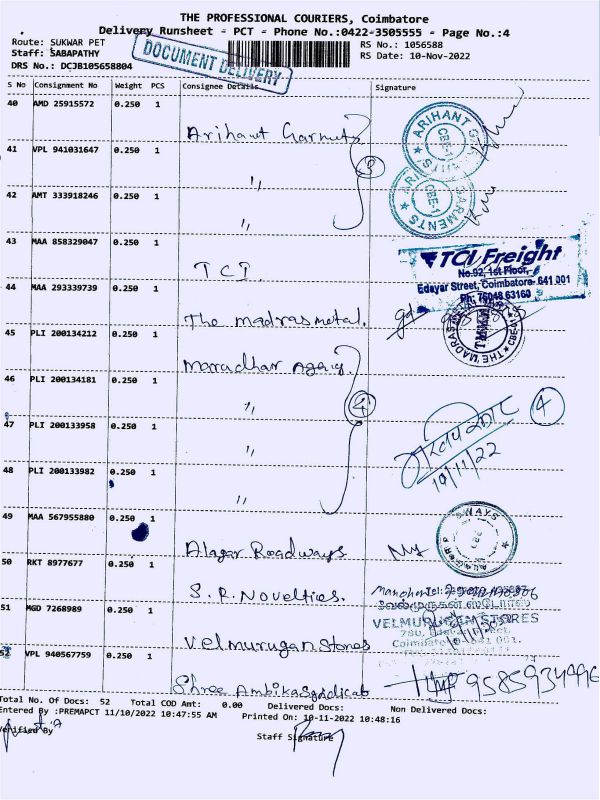 THE PROFESSIONAL COURIERS, Coimbatore
Delivery Runsheet - PCT - Phone No.:0422-3505555 - Page No.:4
Route: SUKWAR PET
Staff: SABAPATHY
DRS No.: DCJB105658804
DOCUMENT DELIVERY
RS No.: 1056588
RS Date: 10-Nov-2022
S No Consignment No Weight PCS Consignee Details Signature
40 AMD 25915572 0.250 1 Arihant Garments
ARIHANT GARMENTS CBE-1
41 VPL 941031647 0.250 1 "
3
42 AMT 333918246 0.250 1 "
ARIHANT GARMENTS CBE-1
43 MAA 858329047 0.250 1 TCI.
TCI Freight
No.92, 1st Floor,
Edayar Street, Coimbatore- 641 001
Ph: 76048 63160
44 MAA 293339739 0.250 1 The madras metal.
45 PLI 200134212 0.250 1
46 PLI 200134181 0.250 1 "
4
47 PLI 200133958 0.250 1 "
4
10/11/22
48 PLI 200133982 0.250 1 "
49 MAA 567955880 0.250 1 Alagar Roadways
50 RKT 8977677 0.250 1 S.R. Novelties.
51 MGD 7268989 0.250 1 Velmurugan Stores
வேல்முருகன் ஸ்டோர்ஸ்
VELMURUGAN STORES
52 VPL 940567759 0.250 1 Shree Ambika Syndicate
9585934496
Total No. Of Docs: 52 Total COD Amt: 0.00 Delivered Docs: Non Delivered Docs:
Entered By :PREMAPCT 11/10/2022 10:47:55 AM Printed On: 10-11-2022 10:48:16
Verified By
Staff Signature